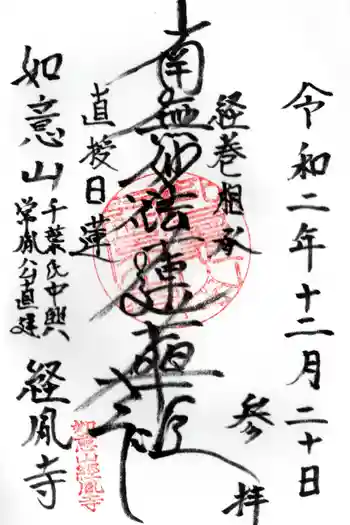 令和二年十二月二十日
参拝
経巻相承
南無妙法蓮華経
直授日蓮
如意山
千葉氏中興
常胤公直建
経胤寺
如意山経胤寺